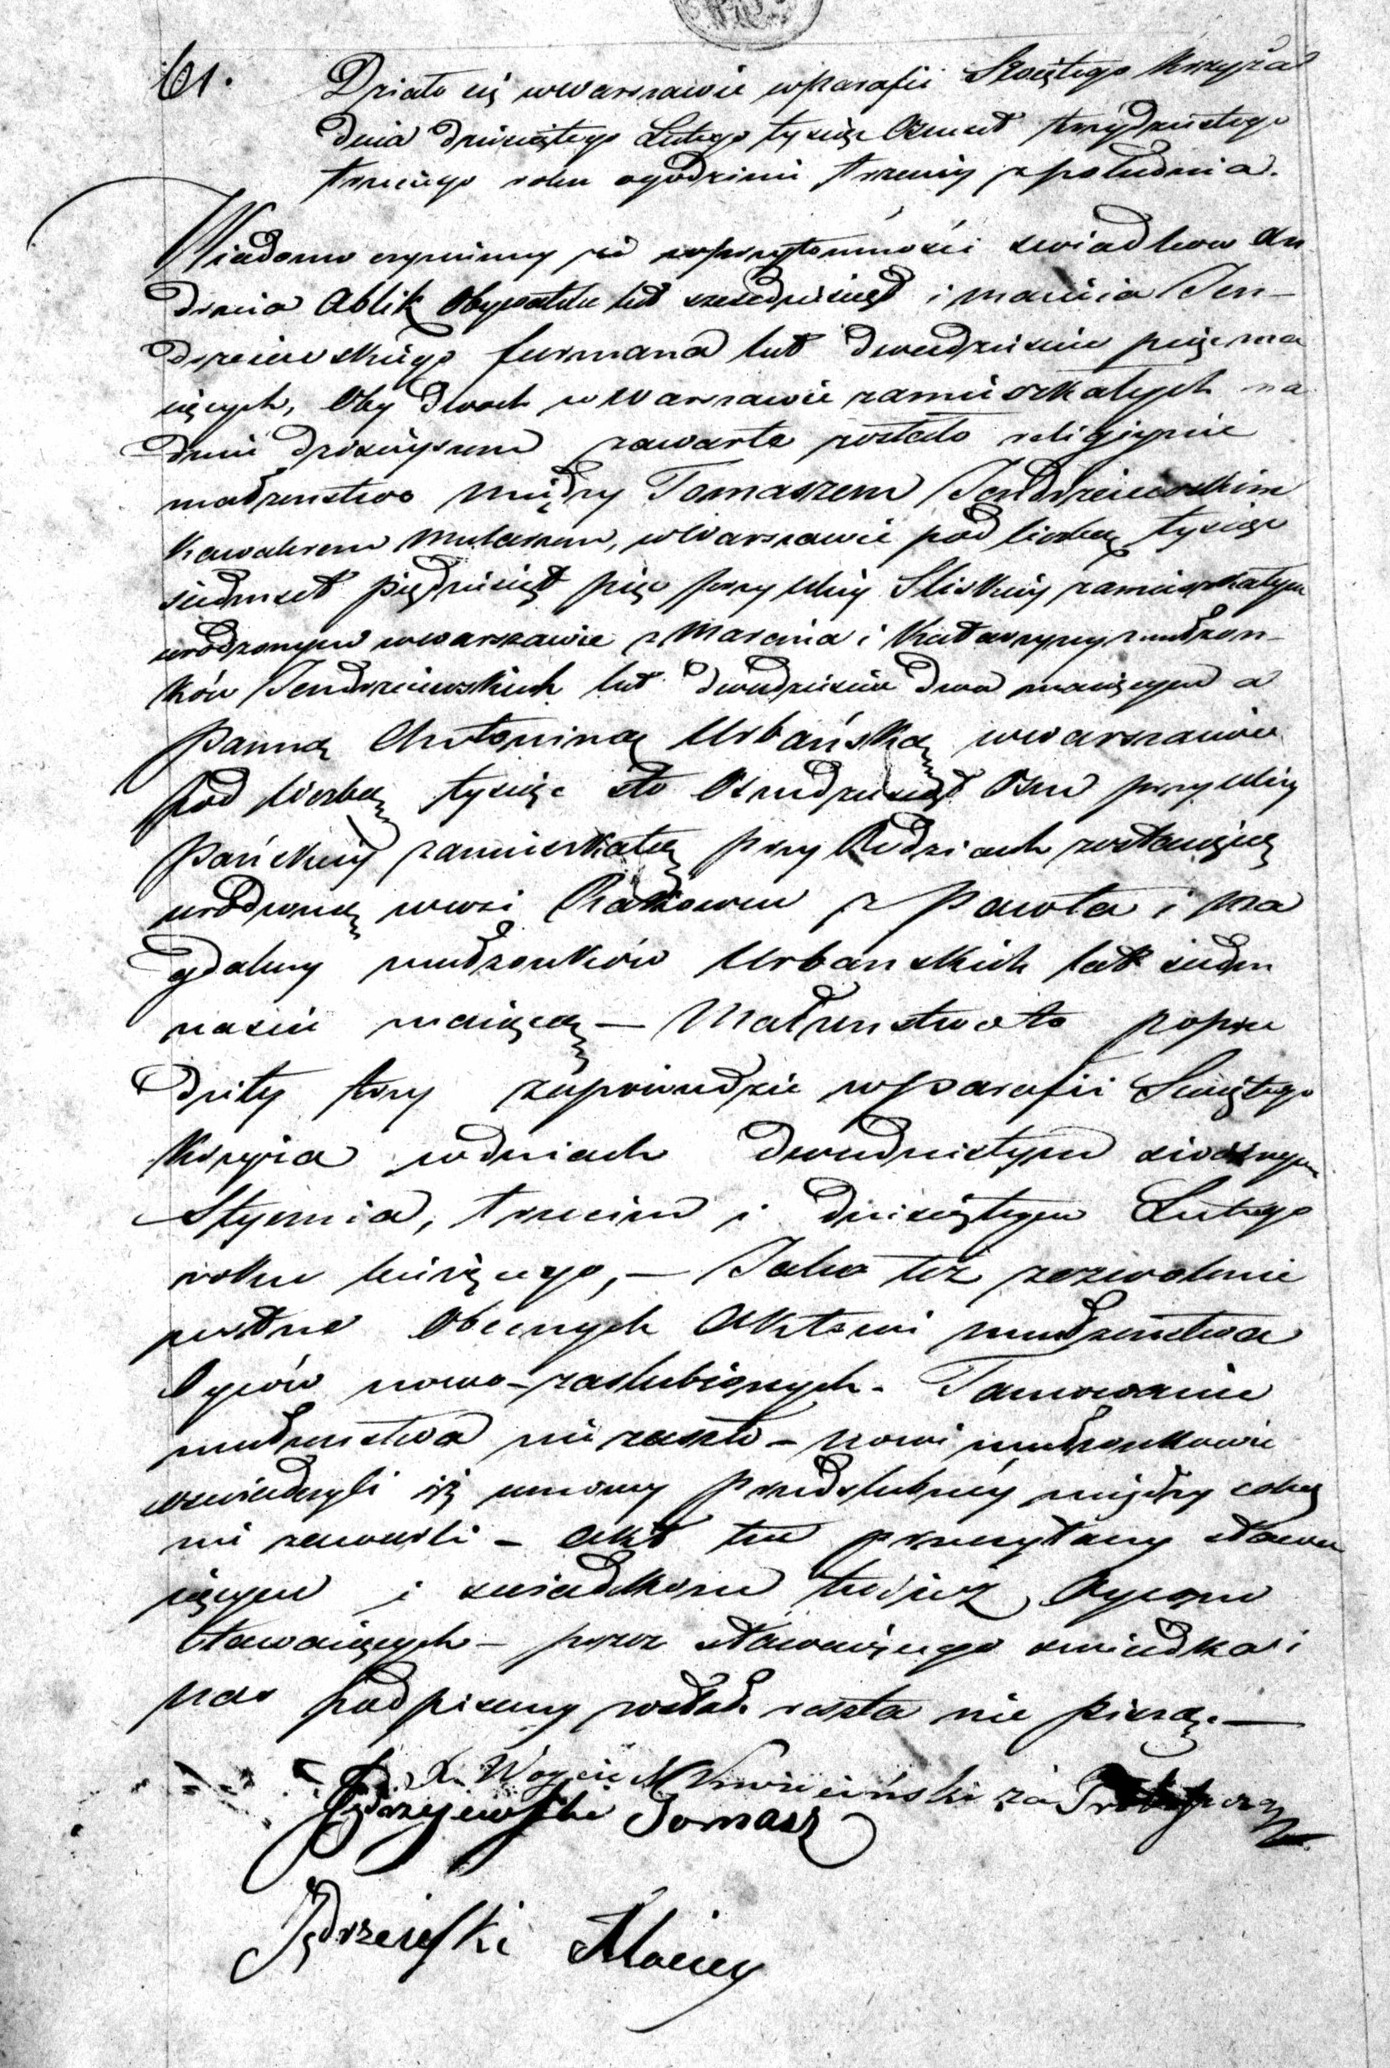 61.
Działo się w Warszawie w Parafii Świętego Krzyża
dnia dziesiątego Lutego tysiąc Ośmset trzydziestego
trzeciego roku o godzinie trzeciej z południa.
Wiadomo czyniemy że w przytomności świadków An
drzeia Ablik Obywatela lat sześćdziesiąt i Macieia Jen-
drzeiewskiego furmana lat dwadzieścia pięć ma
iących, Oby dwóch w Warszawie zamieszkałych na
dniu dzisieyszem zawarte zostało religijnie
małżeństwo między Tomaszem Jendrzeiewskim
Kawalerem Mularzem, w Warszawie pod liczbą tysiąc
siedmset pięćdziesiąt pięć przy Ulicy Sliskiey zamieszkałym
urodzonym w Warszawie z Marcina i Katarzyny małżon-
ków Jendrzeiewskich lat dwadzieścia dwa maiącym a
Panną Antoniną Urbańską w Warszawie
pod liczbą tysiąc sto Ośmdziesiąt Ośm przy Ulicy
Pańskiey zamieszkałą przy Rodzicach zostaiącą
urodzoną w wsi Rakowcu z Pawła i Ma
gdaleny małżonków Urbanskich lat siedm
naście maiącą — Małżeństwo to poprze
dziły trzy zapowiedzie w Parafii Świętego
Krzyża w dniach dwudziestym siódmym
Stycznia, trzecim i dziesiątym Lutego
roku bieżącego, — Jako też zezwolenie
ustne Obecnych Aktowi małżeństwa
Oyców nowo-zaslubionych. Tamowanie
małżeństwa nie zaszło – nowi małżonkowie
oswiadczyli iż umowy przedslubney między sobą
nie zawarli – Akt ten przeczytany stawa
iącym i swiadkom tudzież Oycom
stawaiących – przez stawaiącego swiadka i
nas podpisany został reszta nie piszą. —
X. Woyciech Kwieciński za Proboszcza
Jędrzejewski Tomasz
Jędrzeiewski Maciey